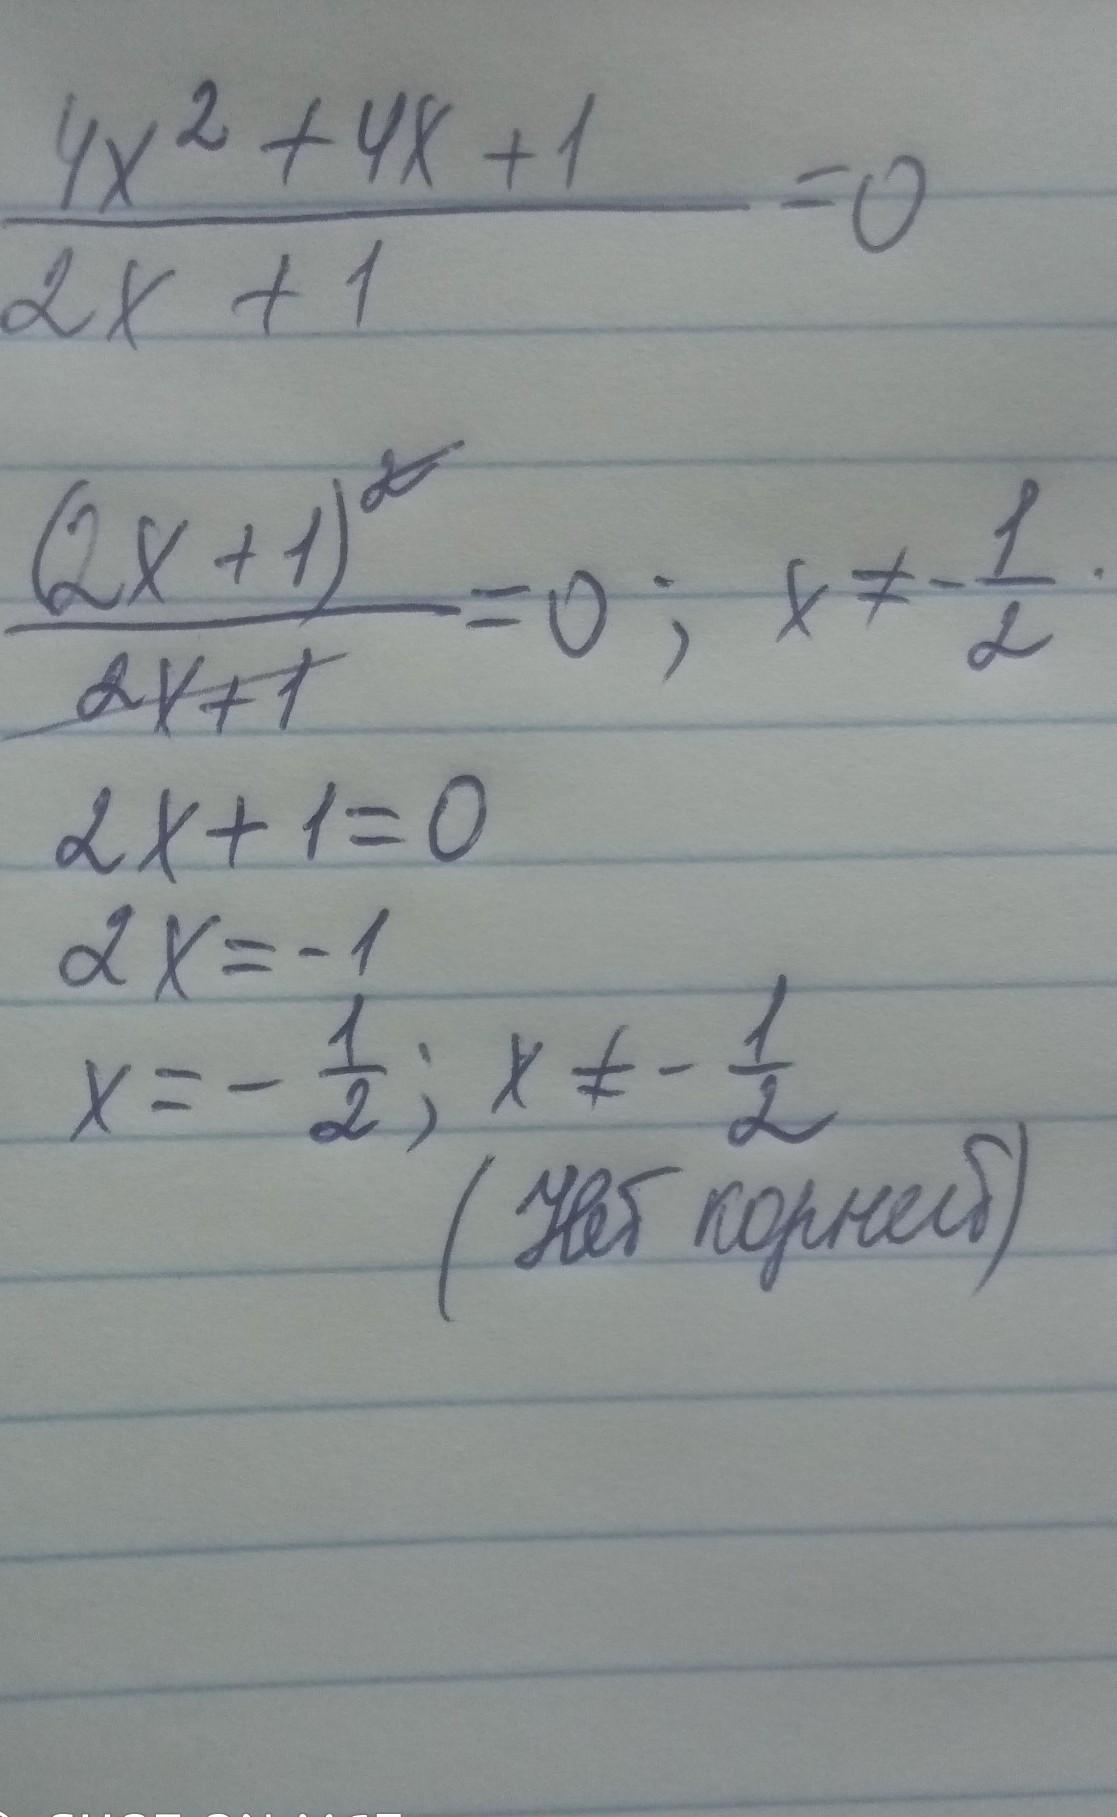 4x² + 4x + 1
2x + 1
= 0
(2x + 1)²
2x + 1
= 0 ; x ≠ - 1/2 .
2x + 1 = 0
2x = -1
x = - 1/2 ; x ≠ - 1/2
(Нет корней)